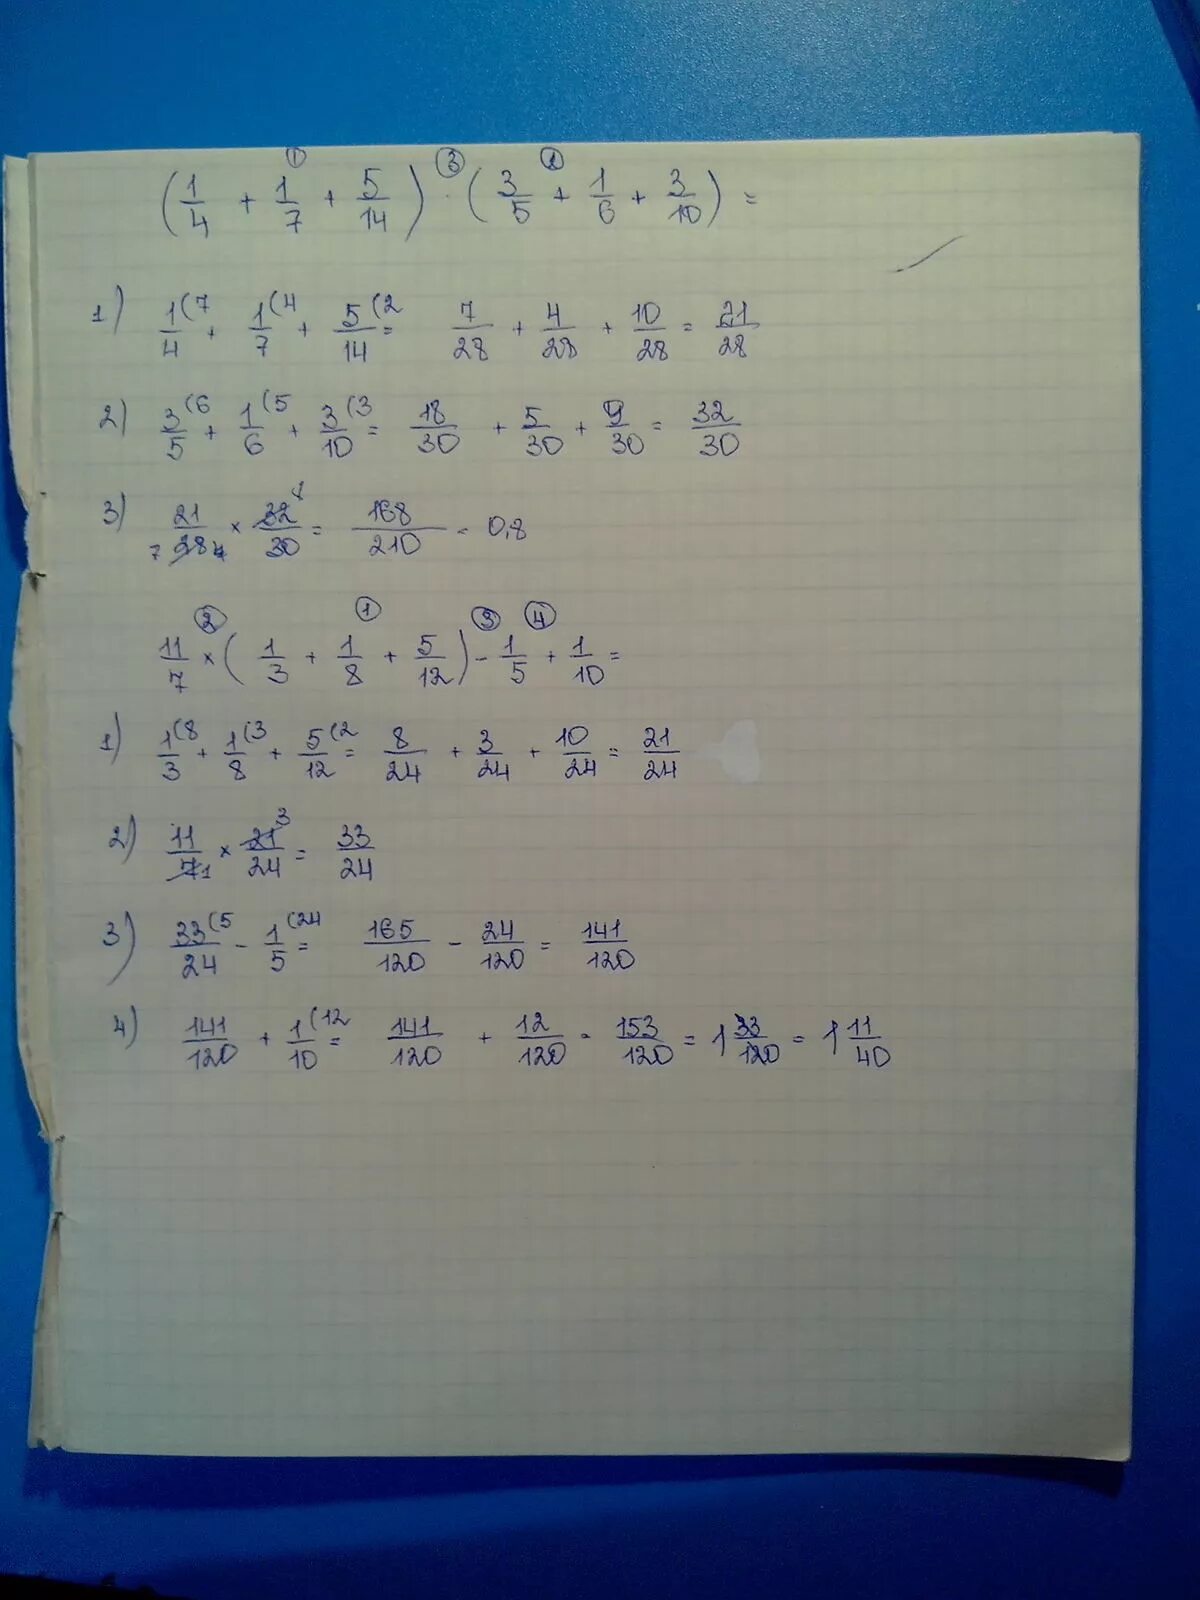 (1/4 + 1/7 + 5/14) · (3/5 + 1/6 + 3/10) = ① ③ ②
1) 1/4 (7 + 1/7 (4 + 5/14 (2 = 7/28 + 4/28 + 10/28 = 21/28
2) 3/5 (6 + 1/6 (5 + 3/10 (3 = 18/30 + 5/30 + 9/30 = 32/30
3) 21/28 7 × 32/30 8 = 168/210 = 0,8
11/7 × (1/3 + 1/8 + 5/12) - 1/5 + 1/10 = ② ① ③ ④
1) 1/3 (8 + 1/8 (3 + 5/12 (2 = 8/24 + 3/24 + 10/24 = 21/24
2) 11/7 1 × 21/24 3 = 33/24
3) 33/24 (5 - 1/5 (24 = 165/120 - 24/120 = 141/120
4) 141/120 + 1/10 (12 = 141/120 + 12/120 = 153/120 = 1 33/120 = 1 11/40